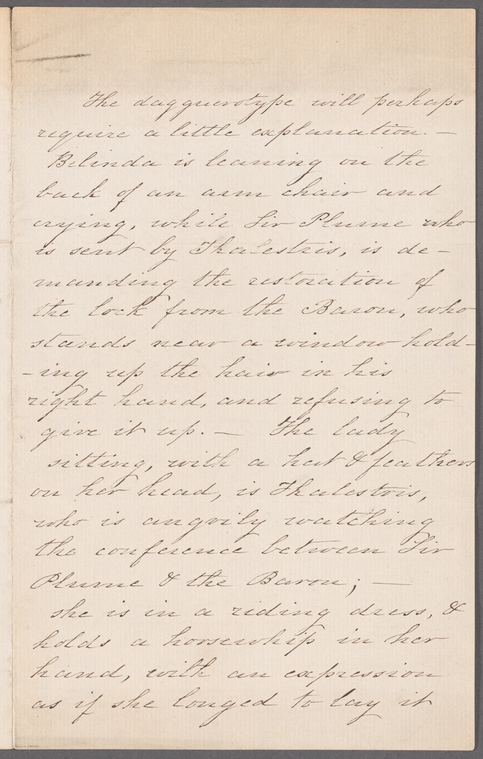 The dagguerotype will perhaps
require a little explanation. —
Belinda is leaning on the
back of an arm chair and
crying, while Sir Plume who
is sent by Thalestris, is de-
manding the restoration of
the lock from the Baron, who
stands near a window hold-
-ing up the hair in his
right hand, and refusing to
give it up. — The lady
sitting, with a hat & feathers
on her head, is Thalestris,
who is angrily watching
the conference between Sir
Plume & the Baron; —
she is in a riding dress, &
holds a horsewhip in her
hand, with an expression
as if she longed to lay it